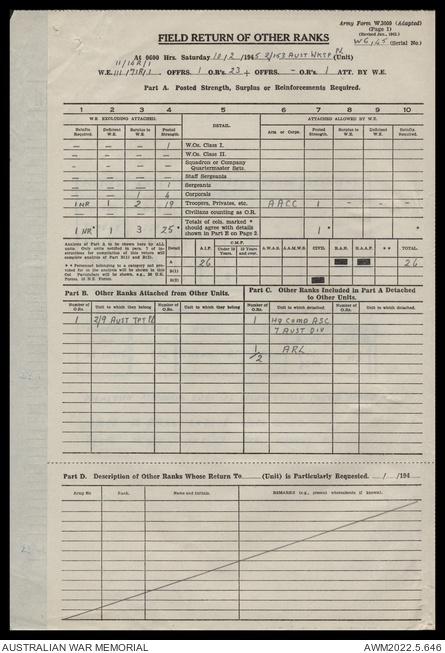 Army Form W.3009 (Adapted)
(Page 1)
(Revised Jan., 1945.)
WG/45 (Serial No.)
FIELD RETURN OF OTHER RANKS
At 0600 Hrs. Saturday 10/2/1945 2/153 AUST WKSP PL (Unit)
11/14R/1
W.E. 111/71R/1. OFFRS. 1 O.R's. 23 + OFFRS. - O.R's. 1 ATT. BY W.E.
Part A. Posted Strength, Surplus or Reinforcements Required.
1 2 3 4 5 6 7 8 9 10
W.E. EXCLUDING ATTACHED. DETAIL. ATTACHED ALLOWED BY W.E.
Reinfts Required. Deficient W.E. Surplus to W.E. Posted Strength. Arm or Corps. Reinfts Required. Posted Strength. Surplus to W.E. Deficient W.E.
— — — 1 W.Os. Class I.
— — — — W.Os. Class II.
— — — — Squadron or Company Quartermaster Sets.
— — — — Staff Sergeants
— — — 1 Sergeants
— — 1 4 Corporals
1 NR 1 2 19 Troopers, Privates, etc. AACC 1 — — —
Civilians counting as O.R.
1 NR* 1 3 25* Totals of cols. marked * should agree with details shown in Part E on Page 2 1* *
Analysis of Part A to be shown here by ALL units.
Detail A.I.F. C.M.F. Under 19 19 Years and over. A.W.A.S. A.A.M.W.S. CIVIL R.A.N. R.A.A.F. ** TOTAL.
A 26 26
B(1)
B(2)
Part B. Other Ranks Attached from Other Units. Part C. Other Ranks Included in Part A Detached to Other Units.
Number of O.Rs. Unit to which they belong Number of O.Rs. Unit to which they belong Number of O.Rs. Unit to which detached. Number of O.Rs. Unit to which detached.
1 2/9 AUST TPT PL 1 HQ COMD ASC
7 AUST DIV
1 ARL
2
Part D. Description of Other Ranks Whose Return To (Unit) is Particularly Requested. / /194
Army No Rank. Name and Initials. REMARKS (e.g., present whereabouts if known).
AUSTRALIAN WAR MEMORIAL AWM2022.5.646